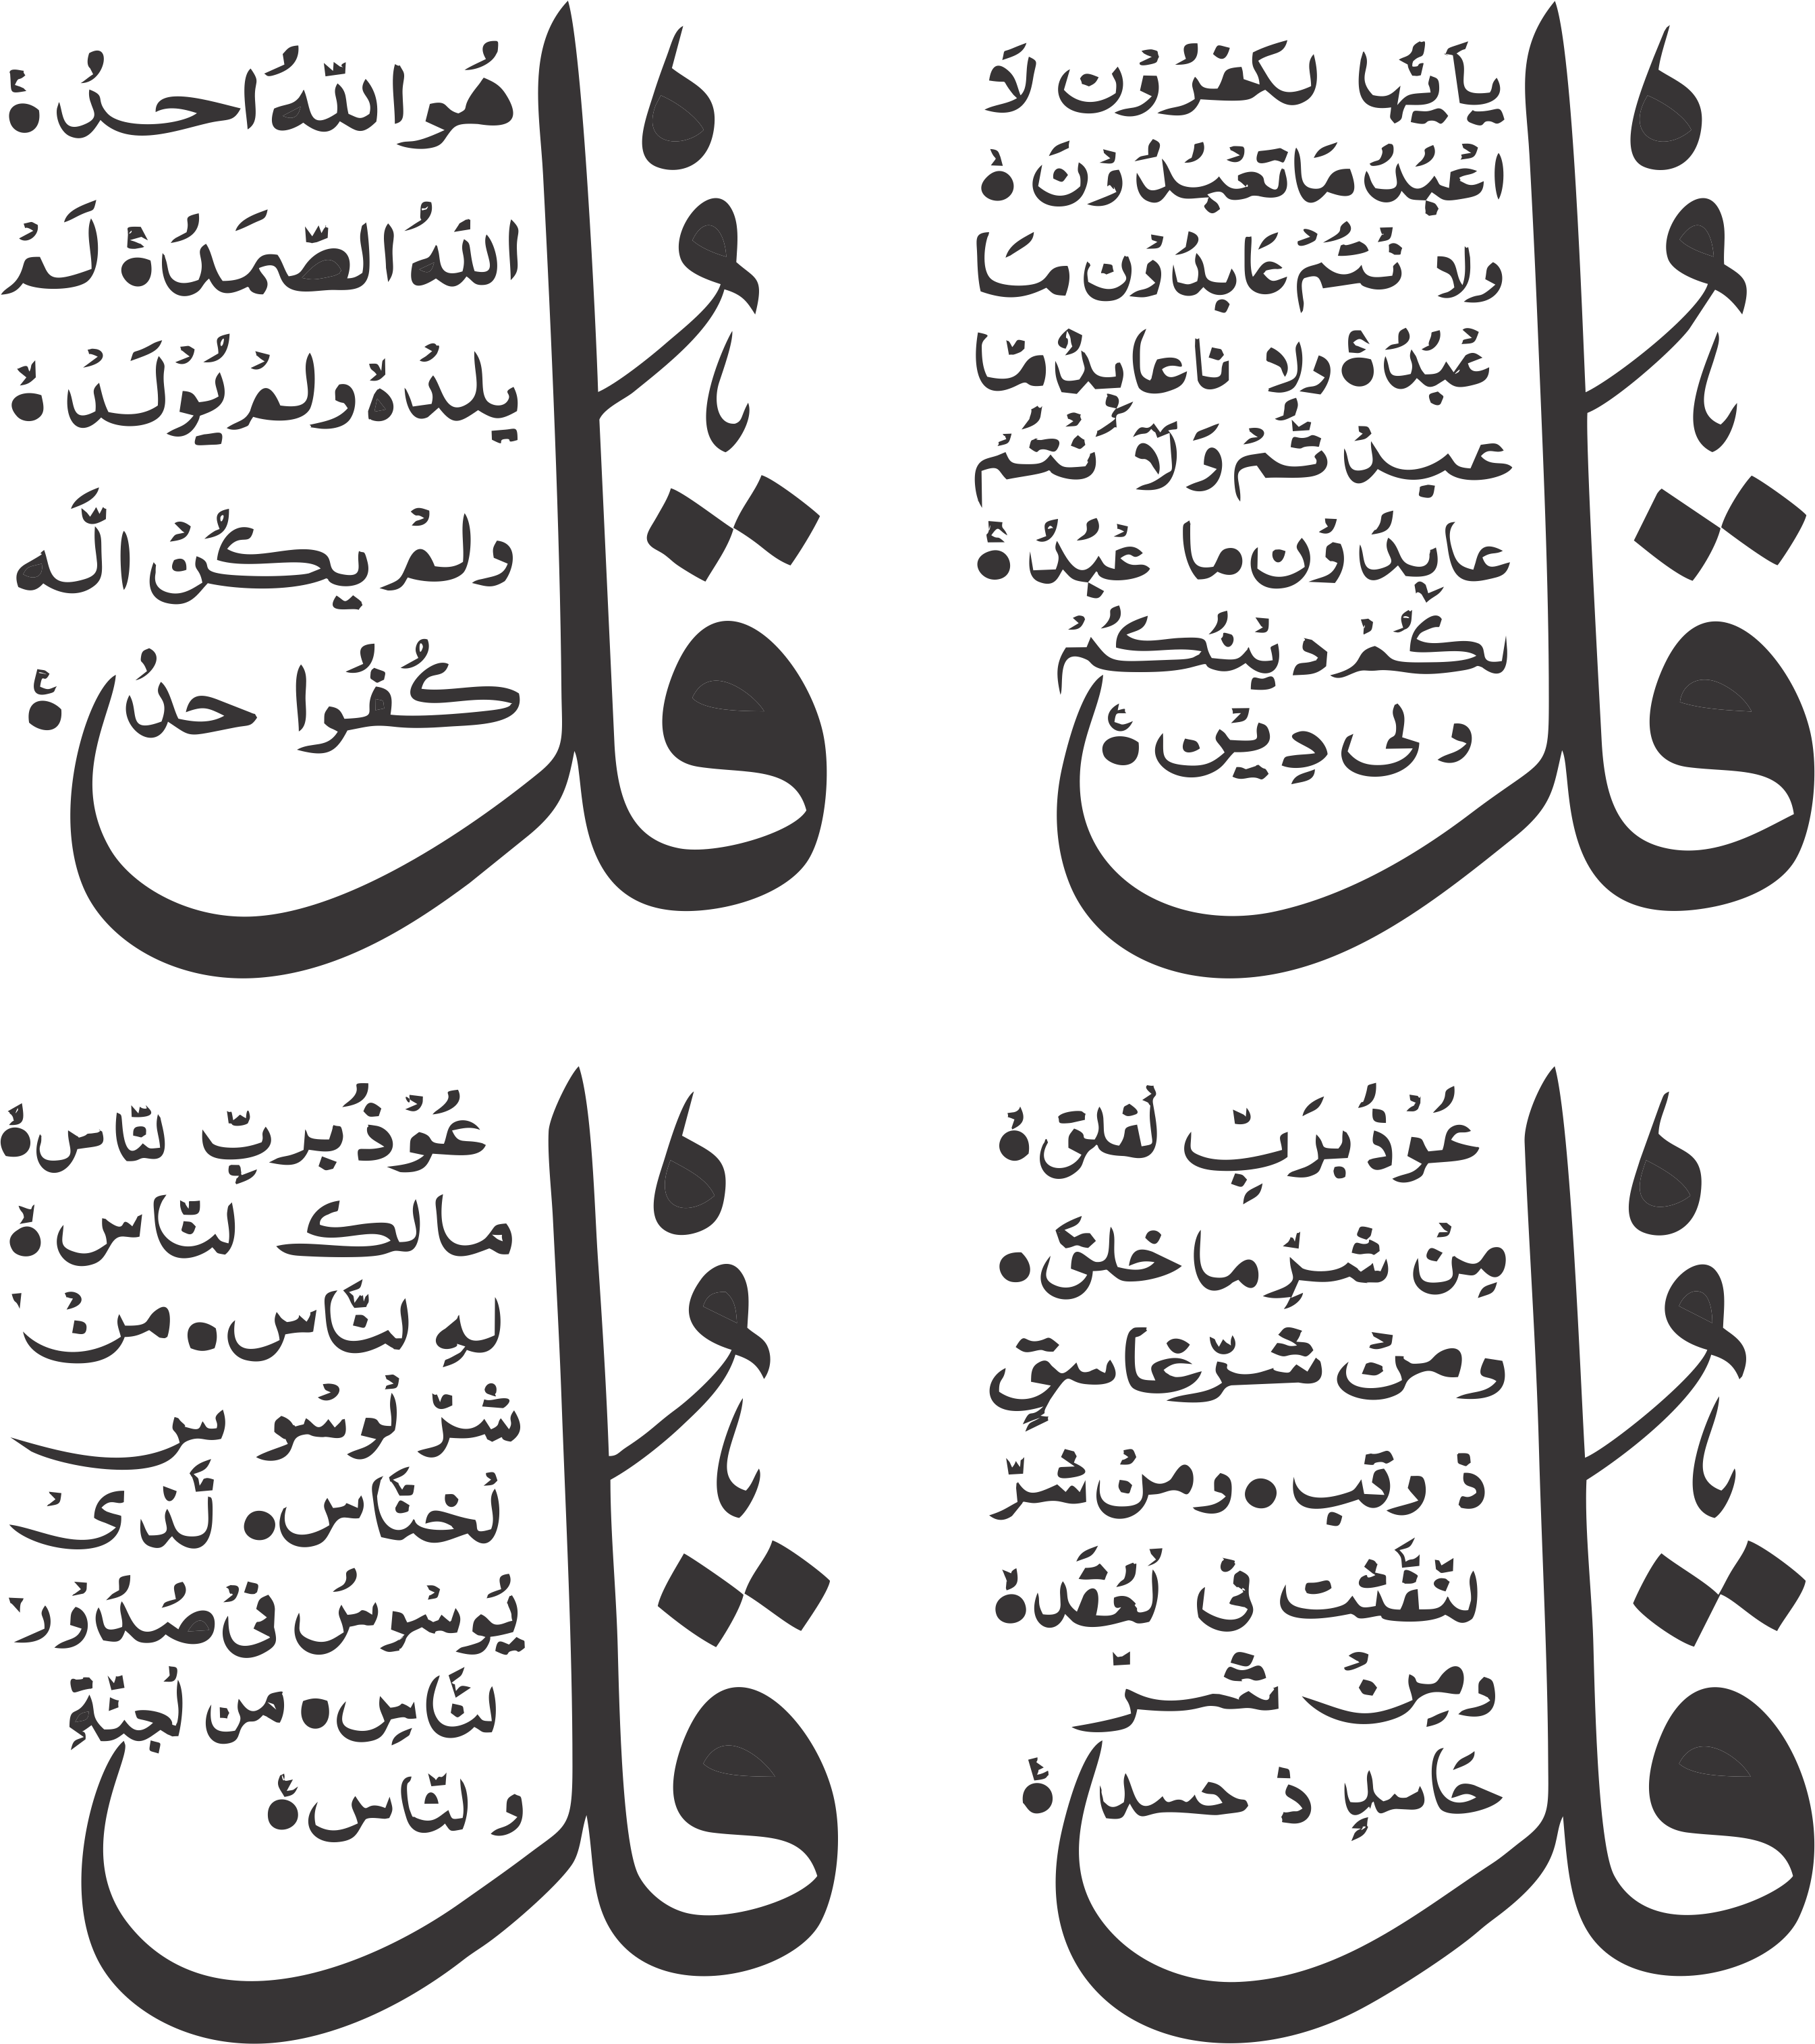 قُلْ
يٰٓاَيُّهَا الْكٰفِرُوْنَ لَآ
اَعْبُدُ مَا تَعْبُدُوْنَ
وَلَآ اَنْتُمْ عٰبِدُوْنَ مَآ
اَعْبُدُ وَلَآ اَنَا عَابِدٌ مَّا
عَبَدْتُّمْ وَلَآ اَنْتُمْ
عٰبِدُوْنَ مَآ اَعْبُدُ
لَكُمْ دِيْنُكُمْ
وَلِىَ دِيْنِ
قُلْ
هُوَ اللّٰهُ اَحَدٌ
اَللّٰهُ الصَّمَدُ لَمْ
يَلِدْ وَلَمْ يُوْلَدْ
وَلَمْ يَكُنْ لَّهٗ
كُفُوًا اَحَدٌ
قُلْ
اَعُوْذُ بِرَبِّ الْفَلَقِ
مِنْ شَرِّ مَا خَلَقَ
وَمِنْ شَرِّ غَاسِقٍ
اِذَا وَقَبَ وَمِنْ شَرِّ
النَّفّٰثٰتِ فِى الْعُقَدِ
وَمِنْ شَرِّ
حَاسِدٍ اِذَا حَسَدَ
قُلْ
اَعُوْذُ بِرَبِّ النَّاسِ
مَلِكِ النَّاسِ
اِلٰهِ النَّاسِ مِنْ
شَرِّ الْوَسْوَاسِ
الْخَنَّاسِ الَّذِىْ
يُوَسْوِسُ فِىْ صُدُوْرِ
النَّاسِ مِنَ الْجِنَّةِ
وَ النَّاسِ